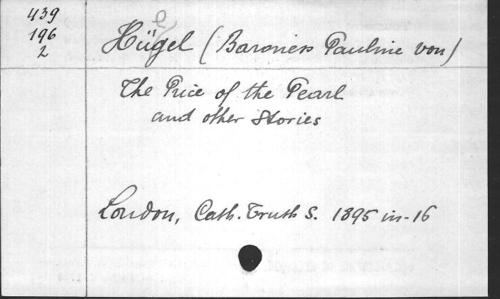 439
196
2
Hügel (Baroness Pauline von)
The Price of the Pearl
and other Stories
London, Cath. Truth S. 1895 in-16